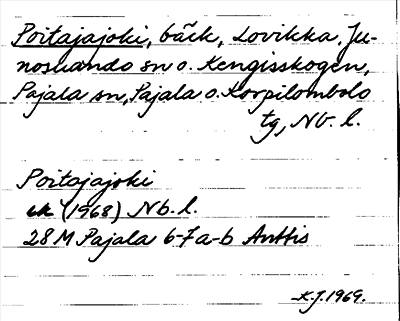 Poitajajoki, bäck, Lovikka, Ju-
noskando sn o. Kengisskogen,
Pajala sn, Pajala o. Korpilombolo
tg, Nb. l.
Poitajajoki
ek (1968) Nb. l.
28 M Pajala 6-7 a-b Anttis
K.J. 1969.